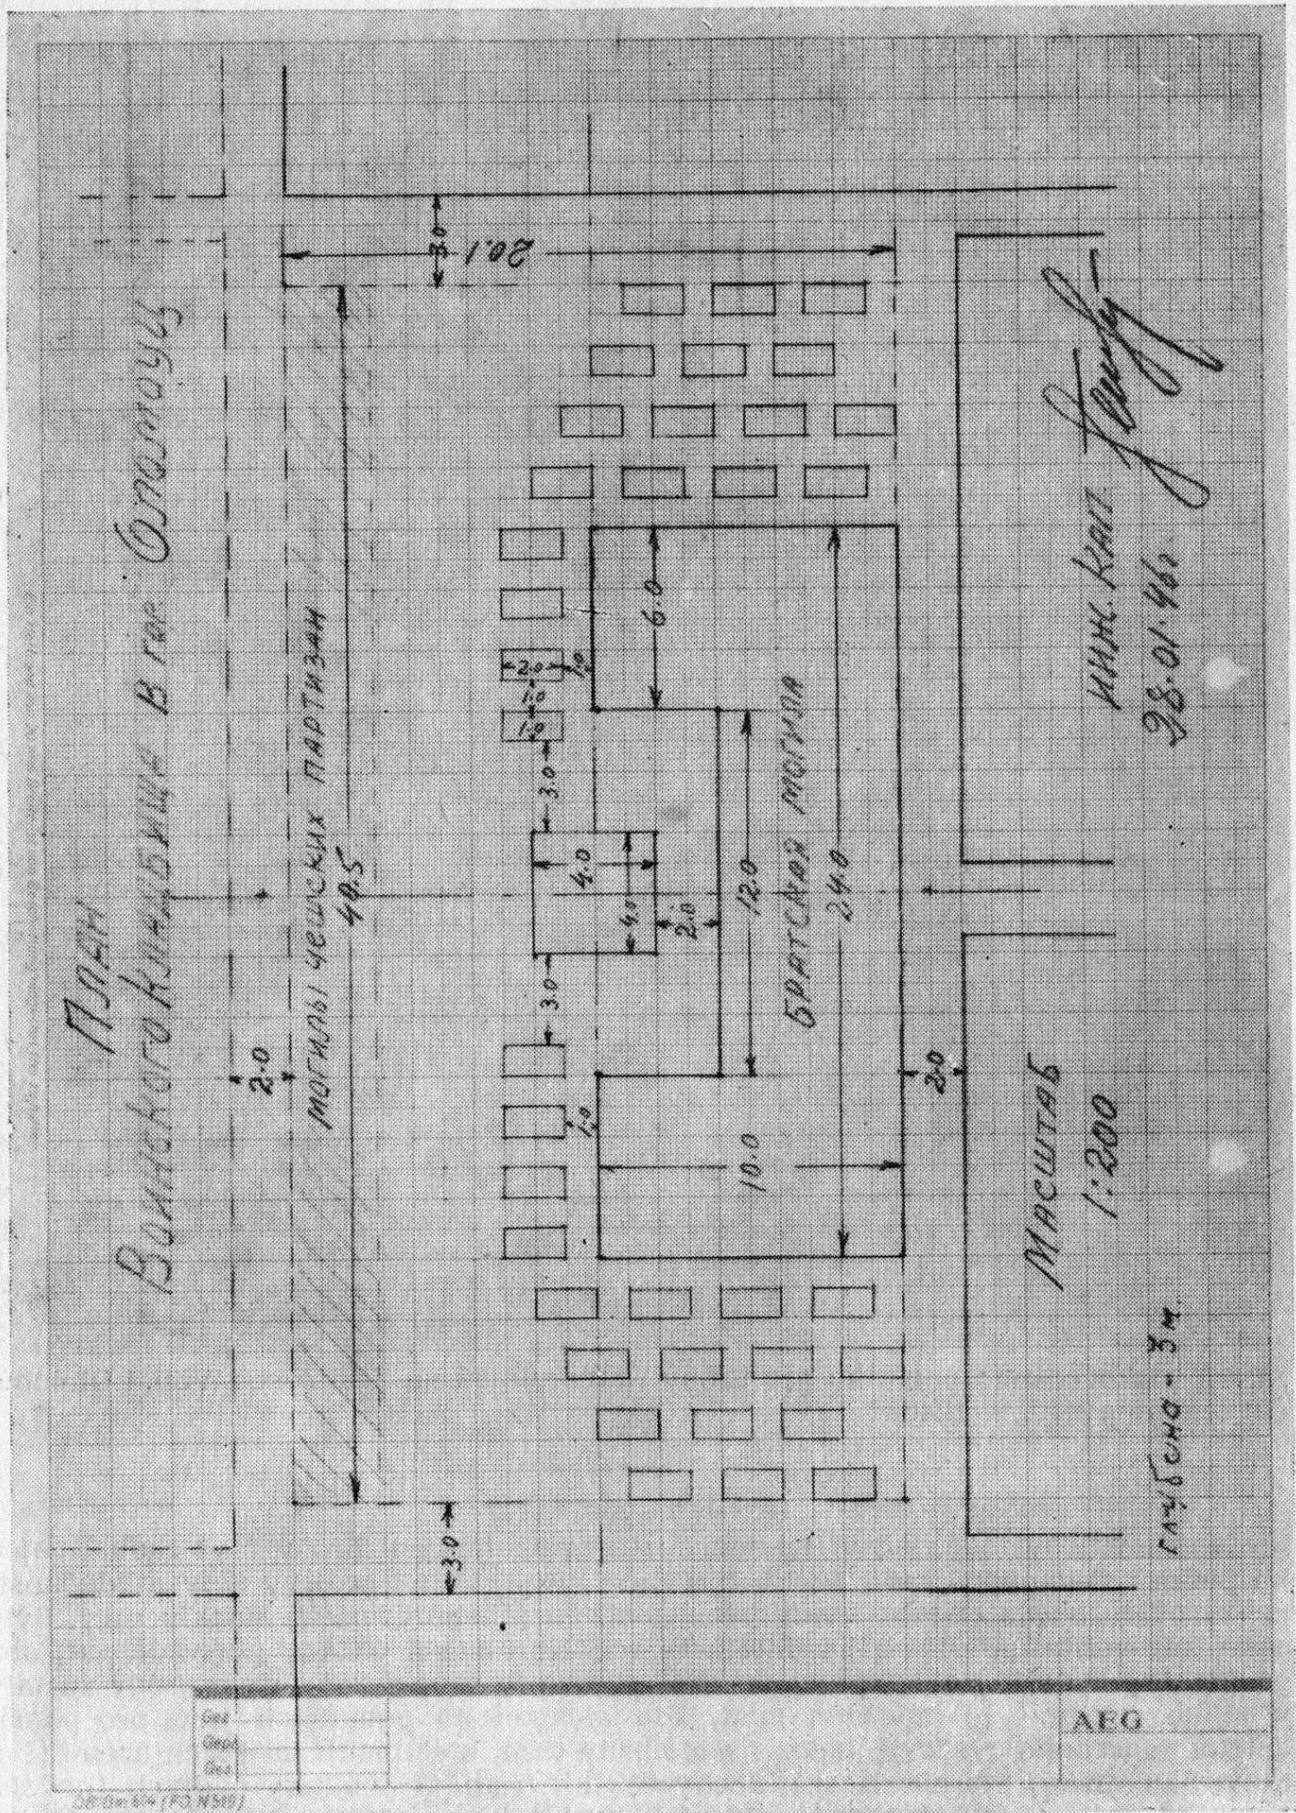 План
Воинского кладбища в гор. Оломоуц
2.0
могилы чешских партизан
40.5
3.0
20.1
3.0
3.0
3.0
2.0
1.0
1.0
1.0
1.0
4.0
4.0
2.0
6.0
12.0
Братская могила
24.0
10.0
2.0
Масштаб
1:200
инж. кап.
28.01.46г.
глубина - 3 м.
Gez
Gepr
Ges
AEG